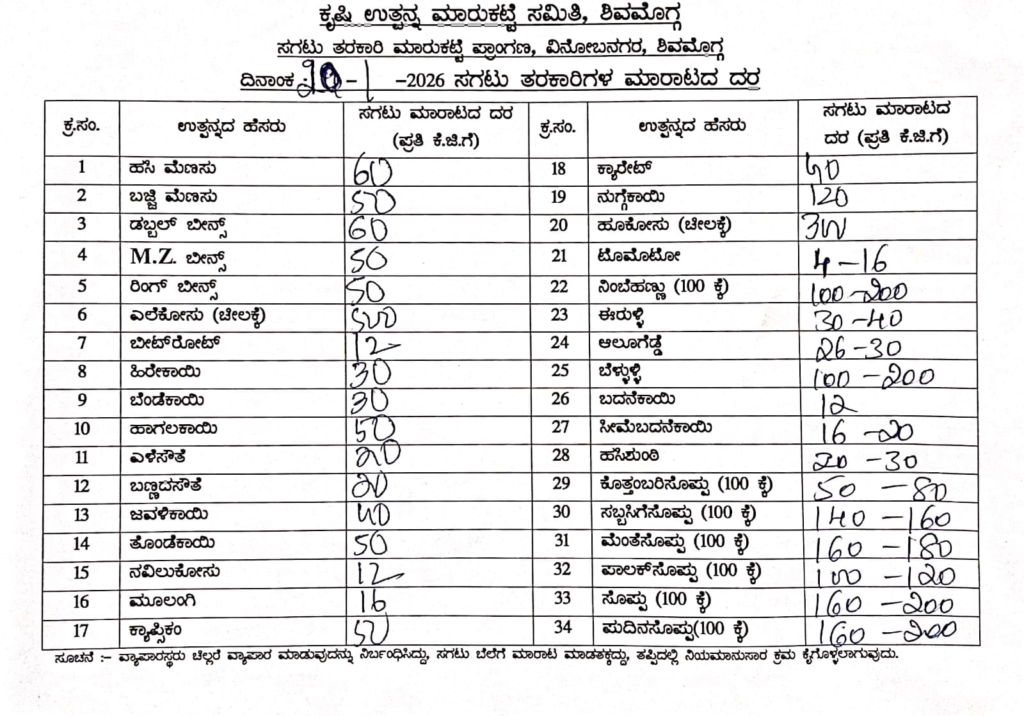 ಕೃಷಿ ಉತ್ಪನ್ನ ಮಾರುಕಟ್ಟೆ ಸಮಿತಿ, ಶಿವಮೊಗ್ಗ
ಸಗಟು ತರಕಾರಿ ಮಾರುಕಟ್ಟೆ ಪ್ರಾಂಗಣ, ವಿನೋಬನಗರ, ಶಿವಮೊಗ್ಗ
ದಿನಾಂಕ : -1 -2026 ಸಗಟು ತರಕಾರಿಗಳ ಮಾರಾಟದ ದರ
ಕ್ರ.ಸಂ. ಉತ್ಪನ್ನದ ಹೆಸರು ಸಗಟು ಮಾರಾಟದ ದರ (ಪ್ರತಿ ಕೆ.ಜಿ.ಗೆ) ಕ್ರ.ಸಂ. ಉತ್ಪನ್ನದ ಹೆಸರು ಸಗಟು ಮಾರಾಟದ ದರ (ಪ್ರತಿ ಕೆ.ಜಿ.ಗೆ)
1 ಹಸಿ ಮೆಣಸು 60 18 ಕ್ಯಾರೇಟ್ 40
2 ಬಜ್ಜಿ ಮೆಣಸು 50 19 ನುಗ್ಗೆಕಾಯಿ 120
3 ಡಬ್ಬಲ್ ಬೀನ್ಸ್ 60 20 ಹೂಕೋಸು (ಚೀಲಕ್ಕೆ) 300
4 M.Z. ಬೀನ್ಸ್ 50 21 ಟೊಮೊಟೋ 4-16
5 ರಿಂಗ್ ಬೀನ್ಸ್ 50 22 ನಿಂಬೆಹಣ್ಣು (100 ಕ್ಕೆ) 100-200
6 ಎಲೆಕೋಸು (ಚೀಲಕ್ಕೆ) 500 23 ಈರುಳ್ಳಿ 30-40
7 ಬೀಟ್‌ರೋಟ್ 12 24 ಆಲೂಗೆಡ್ಡೆ 26-30
8 ಹಿರೇಕಾಯಿ 30 25 ಬೆಳ್ಳುಳ್ಳಿ 100-200
9 ಬೆಂಡೆಕಾಯಿ 30 26 ಬದನೆಕಾಯಿ 12
10 ಹಾಗಲಕಾಯಿ 50 27 ಸೀಮೆಬದನೆಕಾಯಿ 16-20
11 ಎಳೆಸೌತೆ 20 28 ಹಸಿಶುಂಠಿ 20-30
12 ಬಣ್ಣದಸೌತೆ 20 29 ಕೊತ್ತಂಬರಿಸೊಪ್ಪು (100 ಕ್ಕೆ) 50-80
13 ಜವಳಿಕಾಯಿ 40 30 ಸಬ್ಬಸಿಗೆಸೊಪ್ಪು (100 ಕ್ಕೆ) 140-160
14 ತೊಂಡೆಕಾಯಿ 50 31 ಮೆಂತೆಸೊಪ್ಪು (100 ಕ್ಕೆ) 160-180
15 ನವಿಲುಕೋಸು 12 32 ಪಾಲಕ್‌ಸೊಪ್ಪು (100 ಕ್ಕೆ) 100-120
16 ಮೂಲಂಗಿ 16 33 ಸೊಪ್ಪು (100 ಕ್ಕೆ) 160-200
17 ಕ್ಯಾಪ್ಸಿಕಂ 50 34 ಪುದಿನಸೊಪ್ಪು(100 ಕ್ಕೆ) 160-200
ಸೂಚನೆ :- ವ್ಯಾಪಾರಸ್ಥರು ಚಿಲ್ಲರೆ ವ್ಯಾಪಾರ ಮಾಡುವುದನ್ನು ನಿರ್ಬಂಧಿಸಿದ್ದು, ಸಗಟು ಬೆಲೆಗೆ ಮಾರಾಟ ಮಾಡತಕ್ಕದ್ದು, ತಪ್ಪಿದಲ್ಲಿ ನಿಯಮಾನುಸಾರ ಕ್ರಮ ಕೈಗೊಳ್ಳಲಾಗುವುದು.